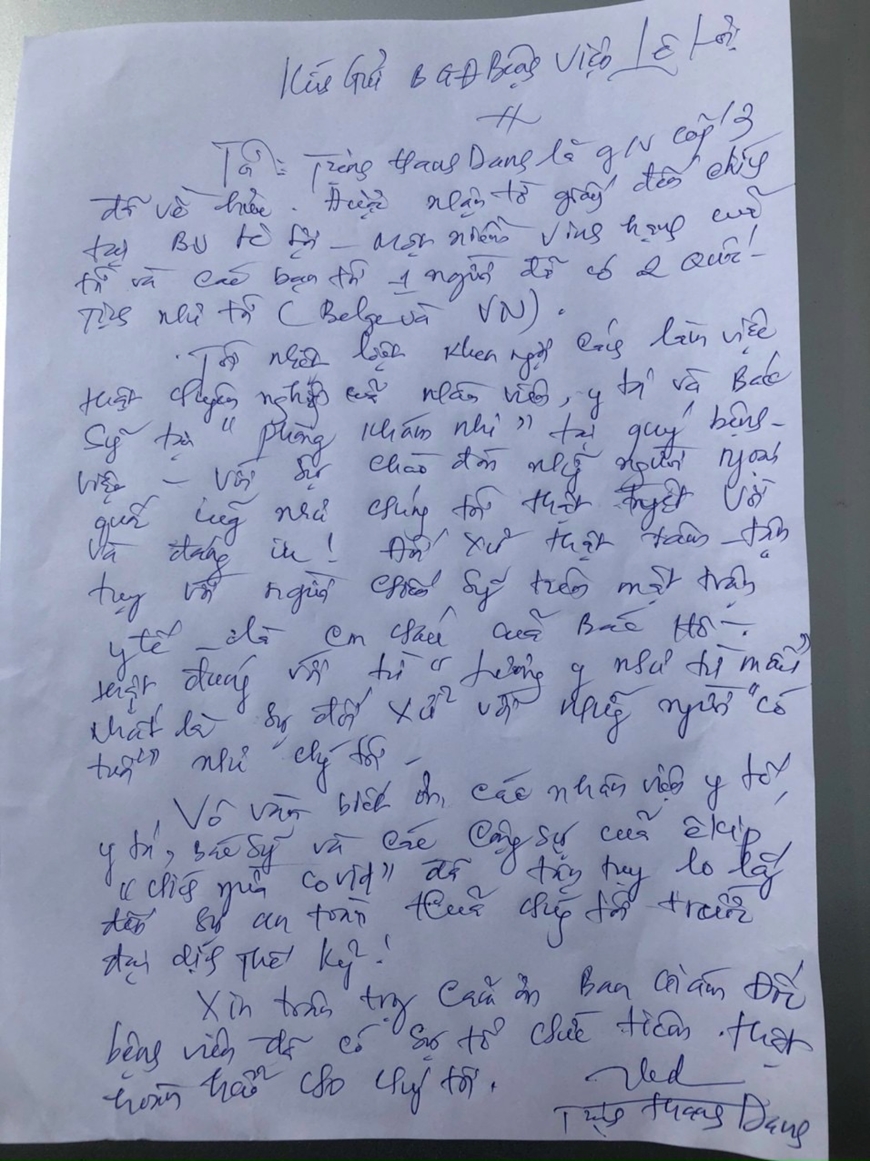 Kính Gửi BGĐ Bệnh Viện Lê Lợi
Tôi: Trịnh Hoang Dang là g/v cấp 3
đã về hưu. Được nhận tờ giấy đến chích
tại BV Lê Lợi – một niềm vinh hạnh của
tôi và các bạn tôi 1 người đã có 2 Quốc
Tịch như tôi (Belge và VN).
Tôi nhiệt liệt khen ngợi cách làm việc
thật chuyên nghiệp của nhân viên, y tá và Bác
Sỹ tại "phòng khám nhi" tại quý bệnh
viện – với sự chào đón những người ngoại
quốc cũng như chúng tôi thật tuyệt vời
và đáng iu! Đối xử thật tâm – tận
tụy với người chiến sỹ trên mặt trận
y tế – là em cháu của Bác Hồ –
thật đúng với từ "lương y như từ mẫu"
nhất là sự đối xử với những người "có
tuổi" như chúng tôi –
Vô vàn biết ơn, các nhân viên y tế,
y tá, Bác sỹ và các cộng sự của êkip
"chích ngừa covid" đã tận tụy lo lắng
đến sự an toàn của chúng tôi trước
đại dịch thế kỷ!
Xin trân trọng cảm ơn Ban Giám Đốc
bệnh viện đã có sự tổ chức tiêm thật
hoàn hảo cho chúng tôi.
Trịnh Hoang Dang